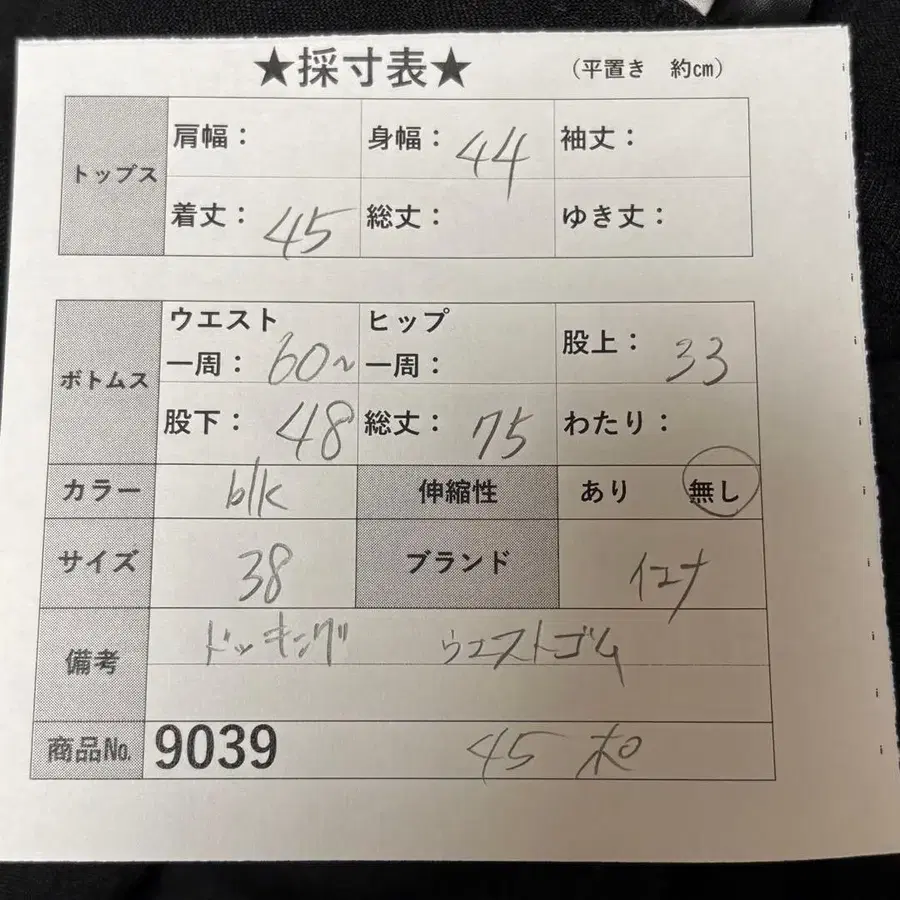 ★採寸表★ (平置き 約㎝)
トップス
肩幅： 身幅：44 袖丈：
着丈：45 総丈： ゆき丈：
ボトムス
ウエスト一周：60～ ヒップ一周： 股上：33
股下：48 総丈：75 わたり：
カラー blk 伸縮性 あり 無し
サイズ 38 ブランド イエナ
備考 ドッキング ウエストゴム
商品No. 9039 45